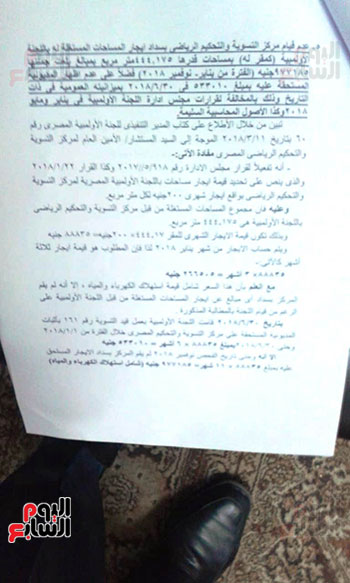 عدم قيام مركز التسوية والتحكيم الرياضى بسداد ايجار المساحات المستغلة له باللجنة
الأولمبية (كمقر له) بمساحات قدرها ٤٤٤.١٧٥ متر مربع بمبالغ بلغت جملتها
٩٧٧١٨٥ جنيه (الفترة من يناير- نوفمبر ٢٠١٨) فضلاً على عدم اظهار المديونية
المستحقة عليه بمبلغ ٥٣٣٠١٠ فى ٢٠١٨/٦/٣٠ بميزانيته العمومية فى ذات
التاريخ وذلك بالمخالفة لقرارات مجلس ادارة اللجنة الأولمبية فى يناير ومايو
٢٠١٨ وكذا الأصول المحاسبية السليمة.
تبين من خلال الاطلاع على كتاب المدير التنفيذى للجنة الأولمبية المصرى رقم
٦٠ بتاريخ ٢٠١٨/٣/١١ الموجه إلى السيد المستشار/ الأمين العام لمركز التسوية
والتحكيم الرياضى المصرى مفادة الآتى:-
- أنه تفعيلاً لقرار مجلس الادارة رقم ٢٠١٧/٥/٩١٨ وكذا القرار ٢٠١٨/١/٢٢
والذى ينص على تحديد قيمة ايجار مساحات باللجنة الأولمبية المصرية لمركز التسوية
والتحكيم الرياضى بواقع ايجار شهرى ٢٠٠ جنيه لكل متر مربع.
وعليه فان مجموع المساحات المستغلة من قبل مركز التسوية والتحكيم الرياضى
باللجنة الأولمبية هى ٤٤٤.١٧٥ متر مربع
وبذلك تكون قيمة الايجار الشهرى للمقر ٤٤٤.١٧×٢٠٠ جنيه = ٨٨٨٣٥ جنيه
ويتم حساب الايجار من شهر يناير ٢٠١٨ لذا فإن المطلوب هو قيمة ايجار ثلاثة
شهور كالآتى.
٨٨٨٣٥ × ٣ شهر = ٢٦٦٥٠٥ جنيه
مع العلم بأن هذا السعر شامل قيمة استهلاك الكهرباء والمياه ، إلا أنه لم يقم
المركز بسداد أى مبالغ عن ايجار المساحات المستغلة من قبل اللجنة الأولمبية على
الرغم من قيام اللجنة بالمطالبة المذكورة.
بتاريخ ٢٠١٨/٦/٣٠ قامت اللجنة الأولمبية بعمل قيد التسوية رقم ١٦١ باثبات
المديونية المستحقة على مركز التسوية والتحكيم المصرى خلال الفترة من ٢٠١٨/١/١
وحتى ٢٠١٨/٦/٣٠ بمبلغ ٨٨٨٣٥ × ٦ أشهر = ٥٣٣٠١٠ جنيه
الا انه وحتى تاريخ الفحص نوفمبر ٢٠١٨ لم يقم المركز بسداد الايجار المستحق
عليه بمبلغ ٨٨٨٣٥ × = ٩٧٧١٨٥ جنيه (شامل استهلاك الكهرباء والمياه)
اليوم السابع